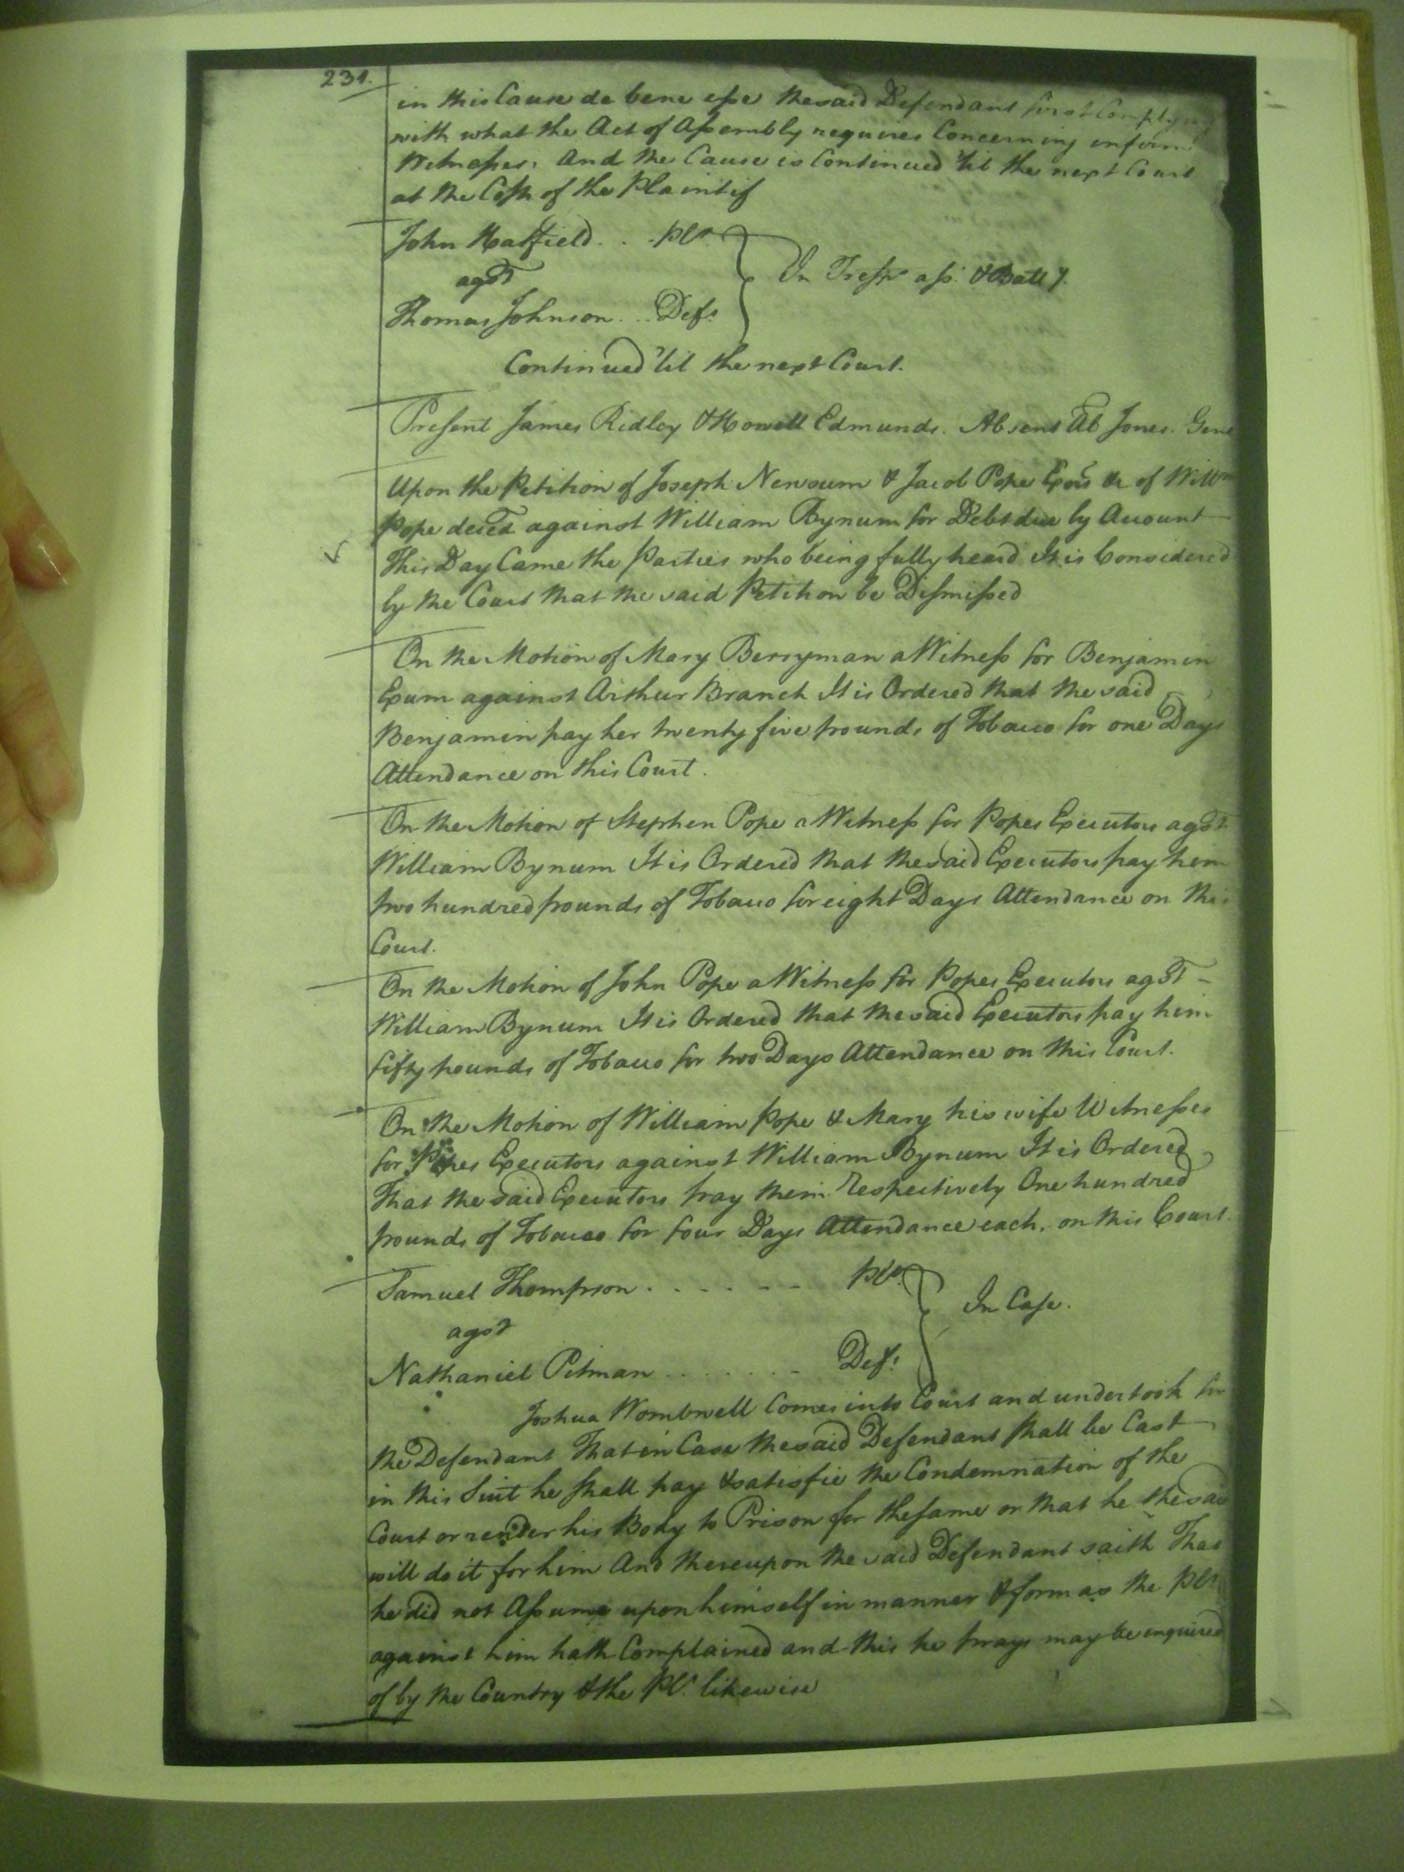 231.
in this Cause de bene esse the said Defendant first Complying
with what the Act of Assembly requires Concerning infirm
Witnesses, And the Cause is Continued 'til the next Court
at the Costs of the Plaintif
John Hatfield . . . plt
agst
Thomas Johnson . . . Deft
In Tresps ass. & Batty.
Continued 'til the next Court.
Present James Ridley & Howell Edmunds. Absent Al Jones. Gent
Upon the Petition of Joseph Newsum & Jacob Pope Exors &c of Willm
Pope deced against William Bynum for Debt due by Account
This Day Came the Parties who being fully heard It is Considered
by the Court that the said Petition be Dismissed
On the Motion of Mary Berryman a Witness for Benjamin
Exum against Arthur Branch It is Ordered that the said
Benjamin pay her twenty five pounds of Tobacco for one Days
Attendance on this Court.
On the Motion of Stephen Pope a Witness for Popes Executors agst
William Bynum It is Ordered that the said Executors pay him
two hundred pounds of Tobacco for eight Days Attendance on this
Court.
On the Motion of John Pope a Witness for Popes Executors agst
William Bynum It is Ordered that the said Executors pay him
fifty pounds of Tobacco for two Days Attendance on this Court.
On the Motion of William Pope & Mary his wife Witnesses
for Popes Executors against William Bynum It is Ordered
That the said Executors pay them respectively One hundred
pounds of Tobacco for four Days Attendance each, on this Court.
Samuel Thompson . . . . . . plt
agst
Nathaniel Pitman . . . . . . . Deft
In Case.
Joshua Wombwell Comes into Court and undertook for
the Defendant That in Case the said Defendant shall be Cast
in this Suit he shall pay & satisfie the Condemnation of the
Court or render his Body to Prison for the same or that he the said
will do it for him And thereupon the said Defendant saith That
he did not Assume upon himself in manner & form as the plt
against him hath Complained and this he prays may be inquired
of by the Country & the plt. likewise